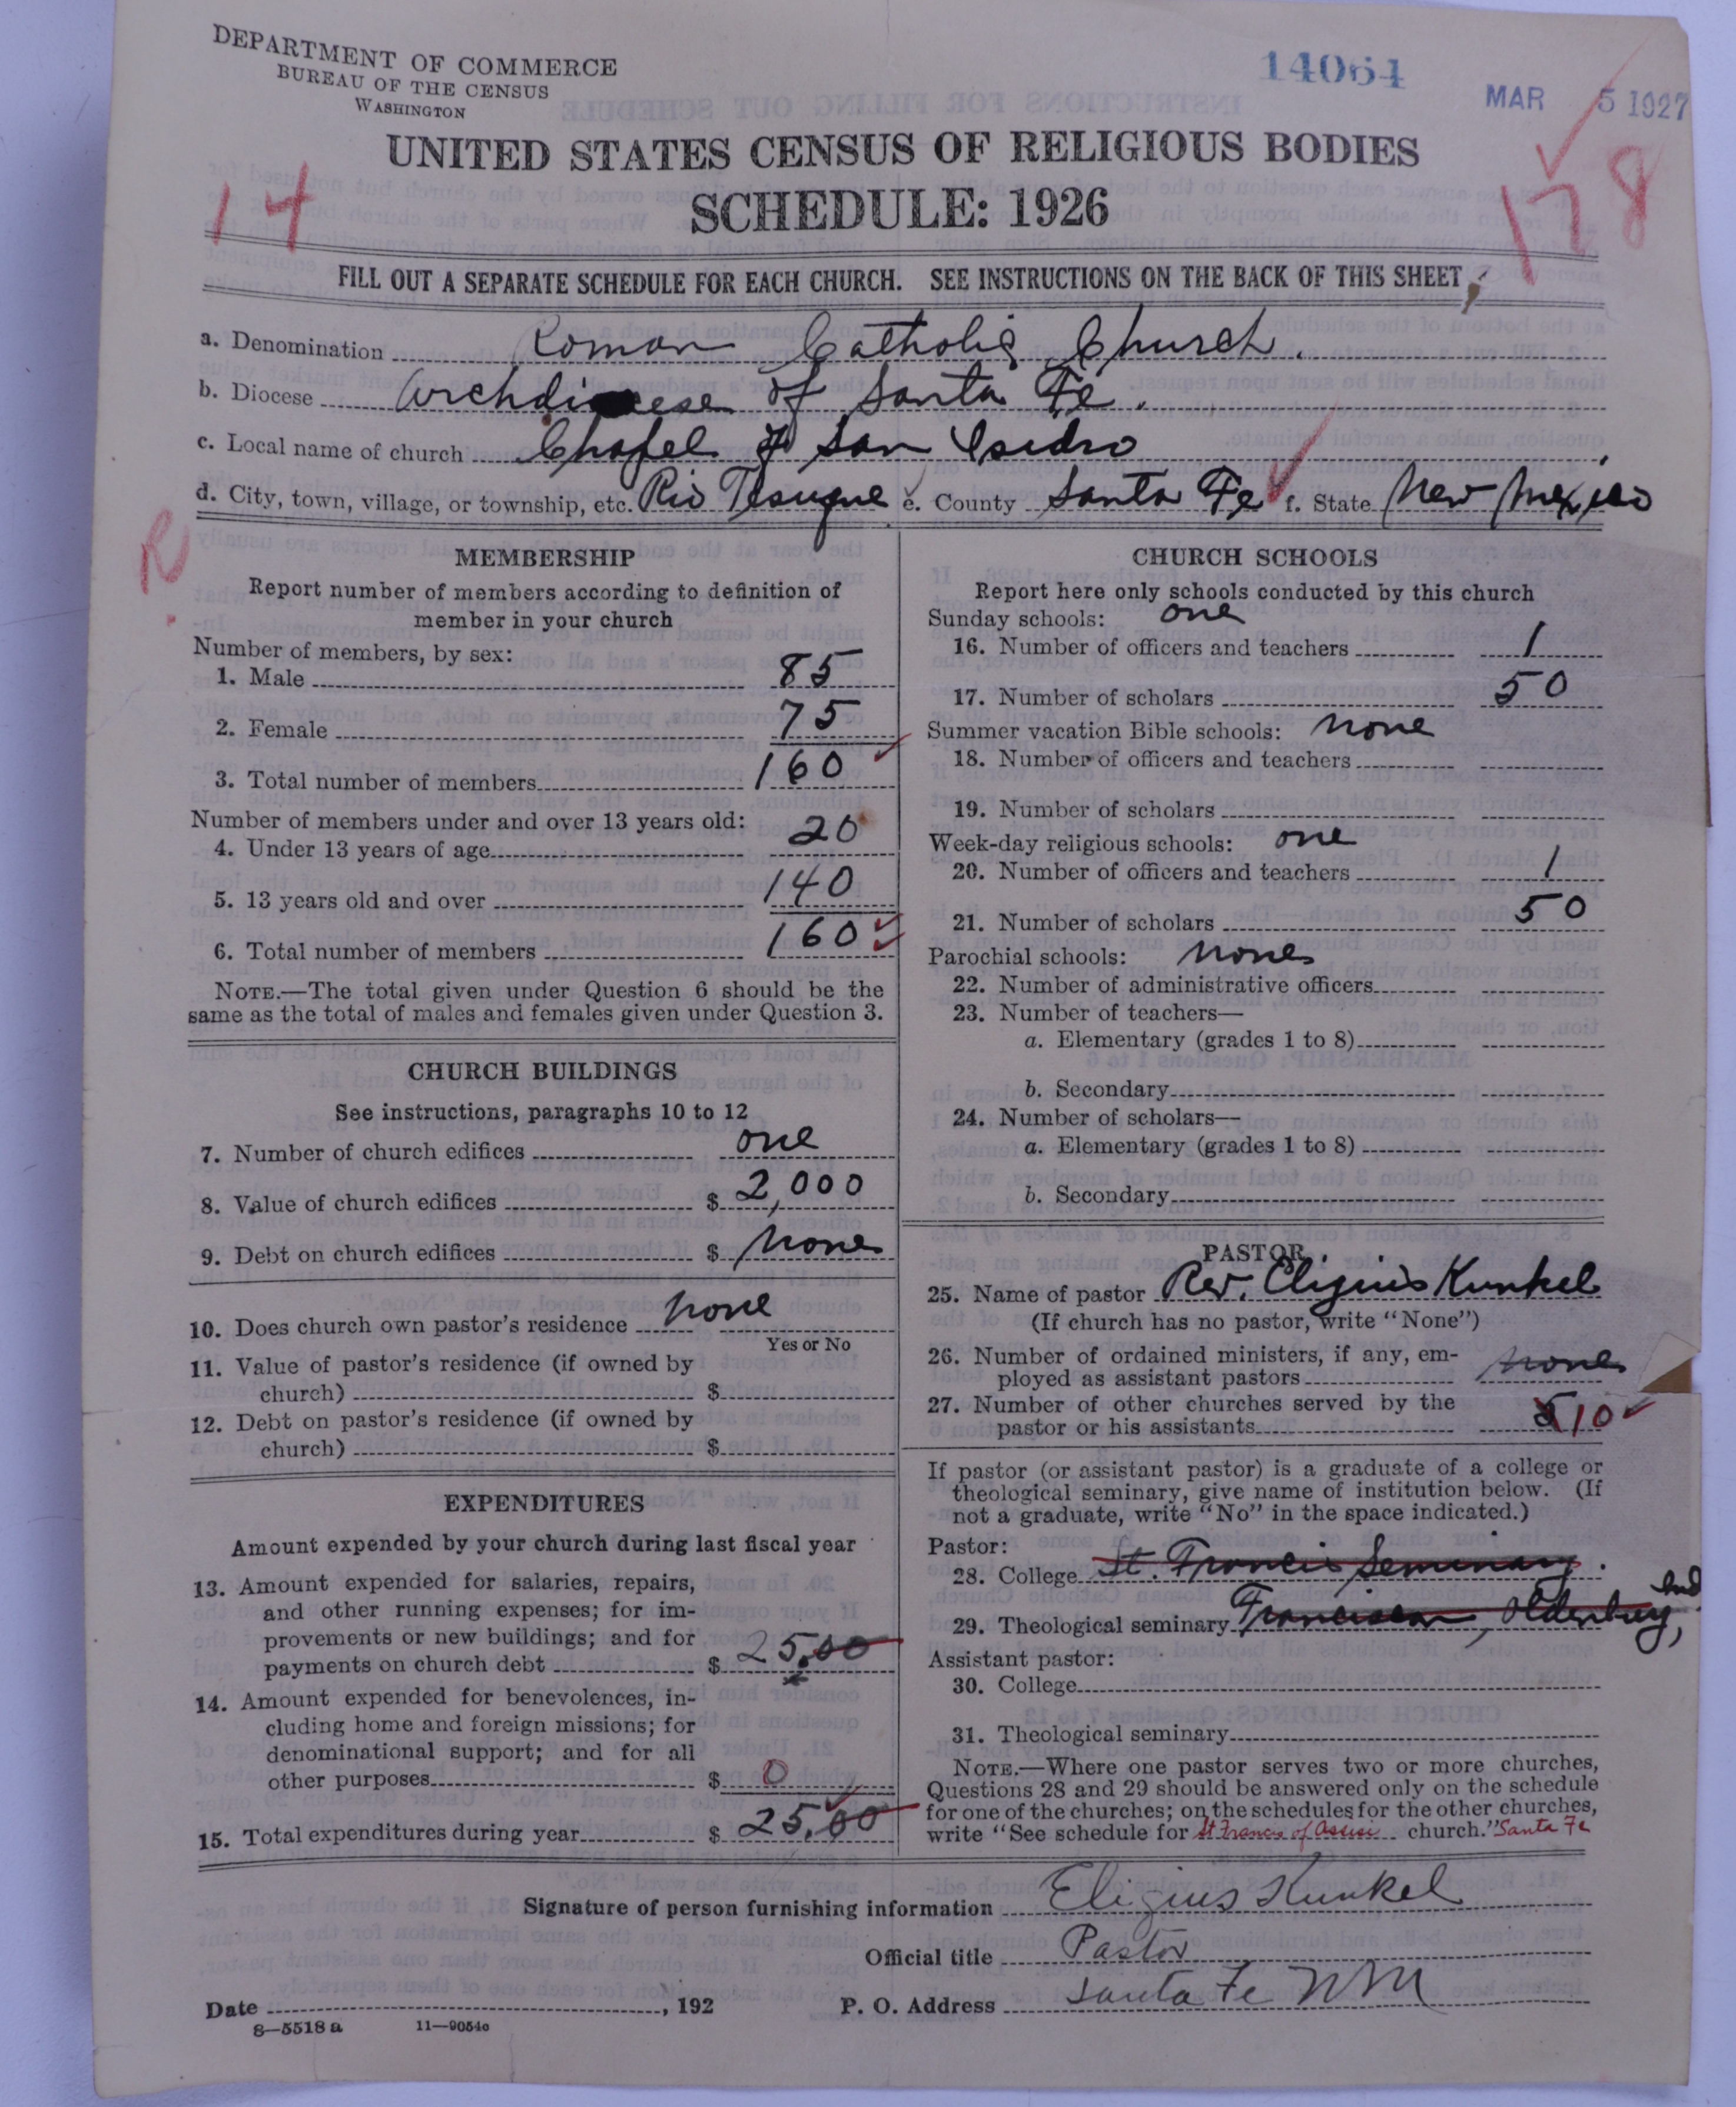 DEPARTMENT OF COMMERCE
BUREAU OF THE CENSUS
WASHINGTON
14064
MAR 5 1927
UNITED STATES CENSUS OF RELIGIOUS BODIES
SCHEDULE: 1926
14
178
FILL OUT A SEPARATE SCHEDULE FOR EACH CHURCH. SEE INSTRUCTIONS ON THE BACK OF THIS SHEET
a. Denomination Roman Catholic Church.
b. Diocese Archdiocese of Santa Fe.
c. Local name of church Chapel of San Isidro
d. City, town, village, or township, etc. Rio Tesuque e. County Santa Fe f. State New Mexico
R
MEMBERSHIP
Report number of members according to definition of
member in your church
Number of members, by sex:
1. Male 85
2. Female 75
3. Total number of members 160
Number of members under and over 13 years old:
4. Under 13 years of age 20
5. 13 years old and over 140
6. Total number of members 160
NOTE.—The total given under Question 6 should be the
same as the total of males and females given under Question 3.
CHURCH BUILDINGS
See instructions, paragraphs 10 to 12
7. Number of church edifices one
8. Value of church edifices $ 2,000
9. Debt on church edifices $ None
10. Does church own pastor's residence none
Yes or No
11. Value of pastor's residence (if owned by
church) $
12. Debt on pastor's residence (if owned by
church) $
EXPENDITURES
Amount expended by your church during last fiscal year
13. Amount expended for salaries, repairs,
and other running expenses; for im-
provements or new buildings; and for
payments on church debt $ 25.00
14. Amount expended for benevolences, in-
cluding home and foreign missions; for
denominational support; and for all
other purposes $ 0
15. Total expenditures during year $ 25.00
CHURCH SCHOOLS
Report here only schools conducted by this church
Sunday schools: one
16. Number of officers and teachers 1
17. Number of scholars 50
Summer vacation Bible schools: none
18. Number of officers and teachers
19. Number of scholars
Week-day religious schools: one
20. Number of officers and teachers 1
21. Number of scholars 50
Parochial schools: None
22. Number of administrative officers
23. Number of teachers—
a. Elementary (grades 1 to 8)
b. Secondary
24. Number of scholars—
a. Elementary (grades 1 to 8)
b. Secondary
PASTOR
25. Name of pastor Rev. Eligius Kunkel
(If church has no pastor, write "None")
26. Number of ordained ministers, if any, em-
ployed as assistant pastors none
27. Number of other churches served by the
pastor or his assistants 10
If pastor (or assistant pastor) is a graduate of a college or
theological seminary, give name of institution below. (If
not a graduate, write "No" in the space indicated.)
Pastor:
28. College St. Francis Seminary.
29. Theological seminary Franciscan, Oldenburg, Ind
Assistant pastor:
30. College
31. Theological seminary
NOTE.—Where one pastor serves two or more churches,
Questions 28 and 29 should be answered only on the schedule
for one of the churches; on the schedules for the other churches,
write "See schedule for St Francis of Assisi church." Santa Fe
Signature of person furnishing information Eligius Kunkel
Official title Pastor
Date , 192
P. O. Address Santa Fe N M
8—5518 a 11—9054c